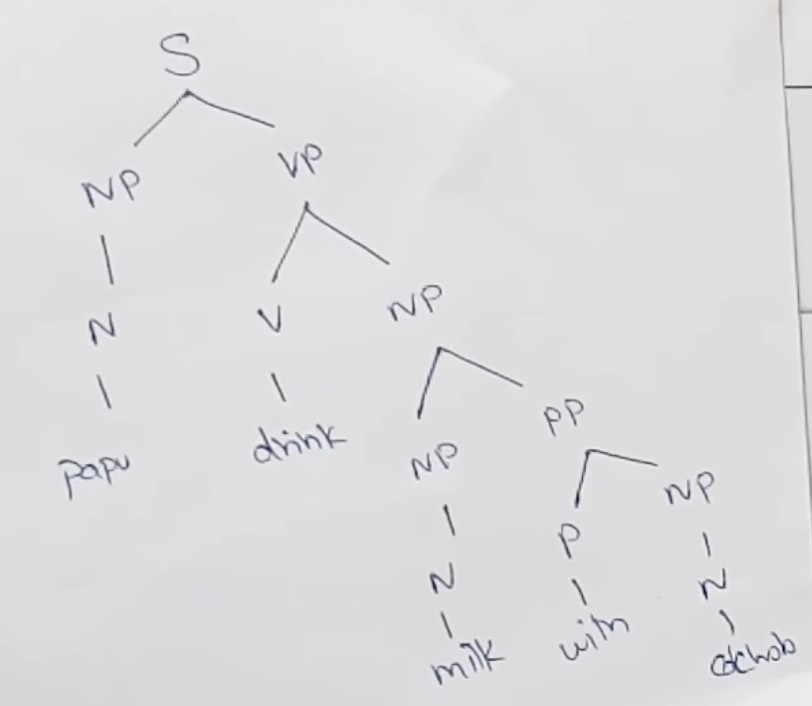 S
NP VP
N V NP
papu drink NP PP
N P NP
milk with N